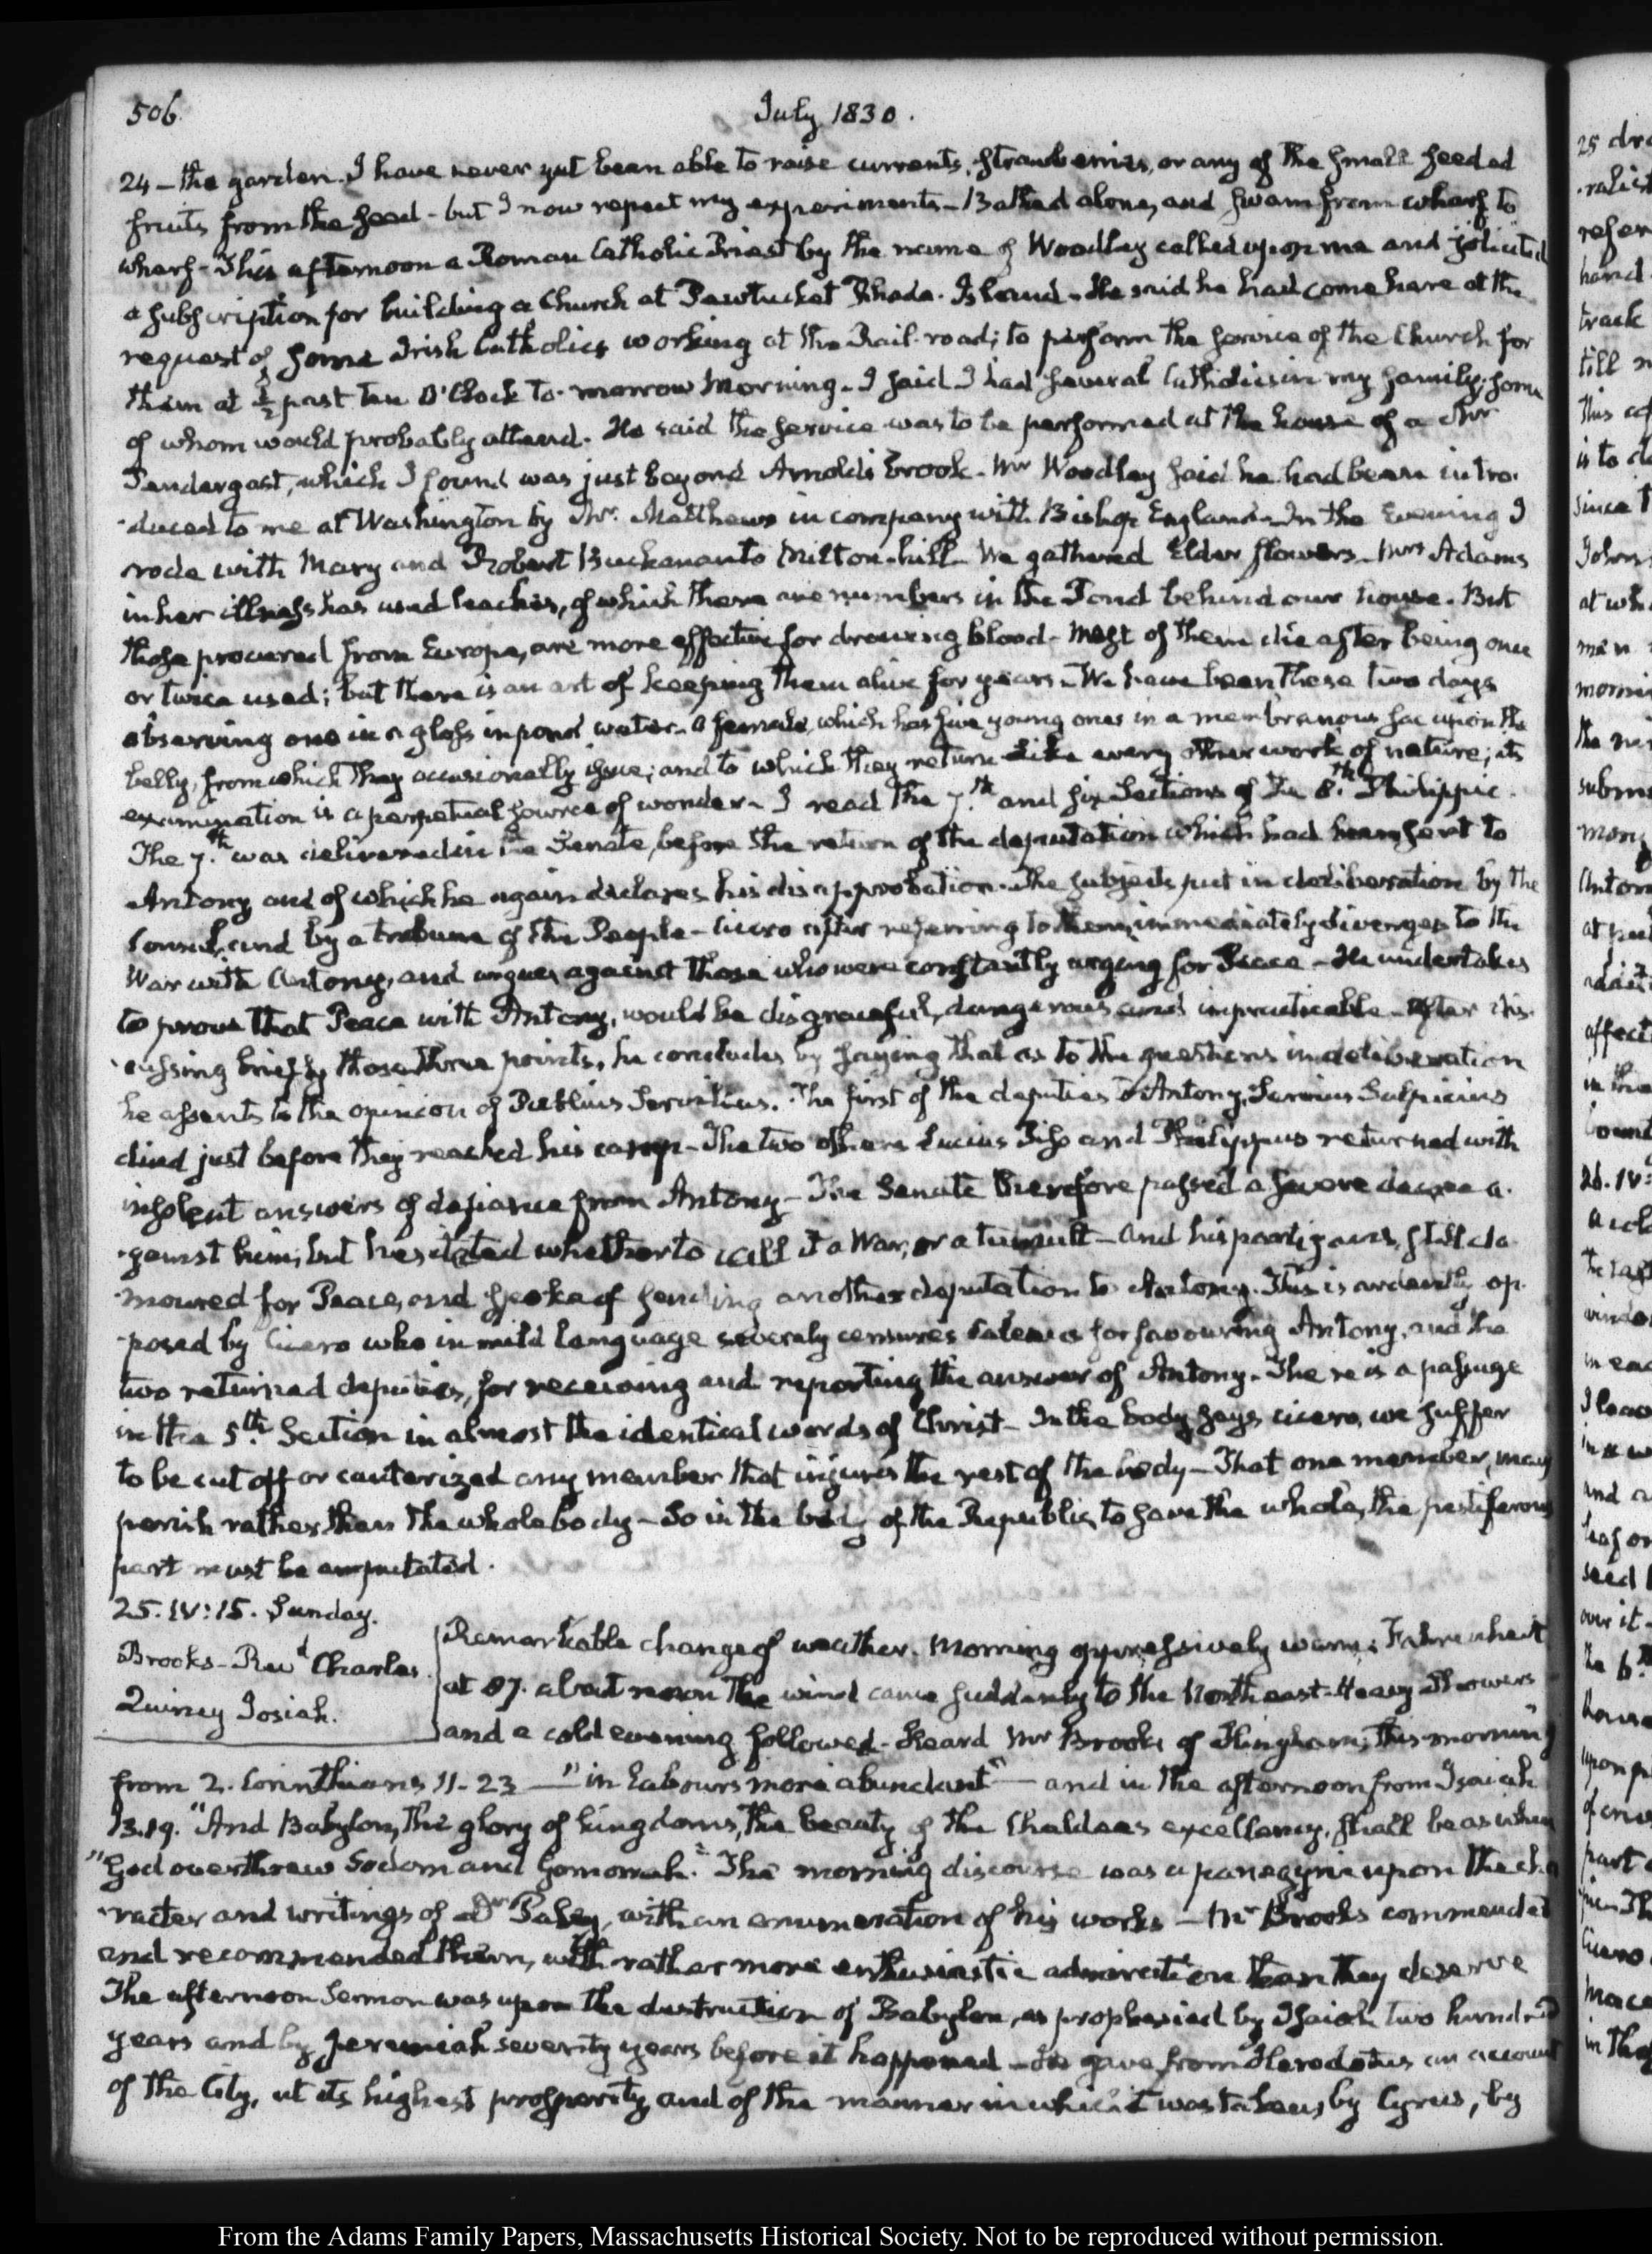 506.
July 1830.
24 – the garden. I have never yet been able to raise currants, strawberries, or any of the small seeded
fruits from the seed – but I now repeat my experiments – Bathed alone, and swam from wharf to
wharf – This afternoon a Roman Catholic Priest by the name of Woodley called upon me and solicited
a subscription for building a Church at Pawtucket Rhode-Island – He said he had come here at the
request of some Irish Catholics working at the Rail-road; to perform the service of the Church for
them at ½ past ten O'Clock to-morrow Morning – I said I had several Catholics in my family, some
of whom would probably attend. He said the service was to be performed at the house of a Mr
Pendergast, which I found was just beyond Arnold's Brook – Mr Woodley said he had been intro-
-duced to me at Washington by Mr. Matthews in company with Bishop England – In the Evening I
rode with Mary and Robert Buchanan to Milton-hill – We gathered Elder flowers – Mrs Adams
in her illness has used leaches, of which there are numbers in the Pond behind our house. But
those procured from Europe, are more effective for drawing blood – Most of them die after being once
or twice used; but there is an art of keeping them alive for years – We have been these two days
observing one in a glass in pond water – a female, which has five young ones in a membranous sac upon the
belly, from which they occasionally issue; and to which they return like every other work of nature; its
examination is a perpetual source of wonder – I read the 7.th and six Sections of the 8.th Philippic.
The 7.th was delivered in the Senate, before the return of the deputation which had been sent to
Antony and of which he again declares his disapprobation. The subjects put in deliberation by the
Consul, and by a tribune of the People – Cicero after referring to them, immediately diverges to the
War with Antony, and argues against those who were constantly urging for Peace – He undertakes
to prove that Peace with Antony, would be disgraceful, dangerous and impracticable – After dis-
-cussing briefly those three points, he concludes by saying that as to the questions in deliberation
he assents to the opinion of Publius Servilius. The first of the deputies to Antony, Servius Sulpicius
died just before they reached his camp – The two others Lucius Piso and Philippus returned with
insolent answers of defiance from Antony – The Senate therefore passed a severe decree a-
-gainst him; but hesitated whether to call it a War, or a tumult – and his partizans, still cla-
-moured for Peace, and spoke of sending another deputation to Antony. This is ardently op-
-posed by Cicero who in mild language severely censures Calenus for favouring Antony, and the
two returned deputies, for receiving and reporting the answer of Antony. There is a passage
in the 5.th Section in almost the identical words of Christ – In the body says cicero, we suffer
to be cut off or cauterized any member that injures the rest of the body – That one member, may
perish rather than the whole body – So in the body of the Republic, to save the whole, the pestiferous
part must be amputated.
25. IV: 15. Sunday.
Brooks – Revd Charles.
Quincy Josiah.
Remarkable change of weather. Morning oppressively warm; Fahrenheit
at 87. about noon the wind came suddenly to the North east – Heavy Showers
and a cold evening followed – Heard Mr Brooks of Hingham; this morning
from 2. Corinthians 11–23 – "in labours more abundant" – and in the afternoon from Isaiah
13.19. "And Babylon, the glory of kingdoms, the beauty of the Chaldees excellency, shall be as when
"God overthrew Sodom and Gomorrah." The morning discourse was a panegyric upon the cha
-racter and writings of Dr Paley, with an enumeration of his works – Mr Brooks commended
and recommended them, with rather more enthusiastic admiration than they deserve
The afternoon Sermon was upon the destruction of Babylon, as prophesied by Isaiah two hundred
years and by Jeremiah seventy years before it happened – He gave from Herodotus an account
of the City, at its highest prosperity and of the manner in which it was taken by Cyrus, by
From the Adams Family Papers, Massachusetts Historical Society. Not to be reproduced without permission.